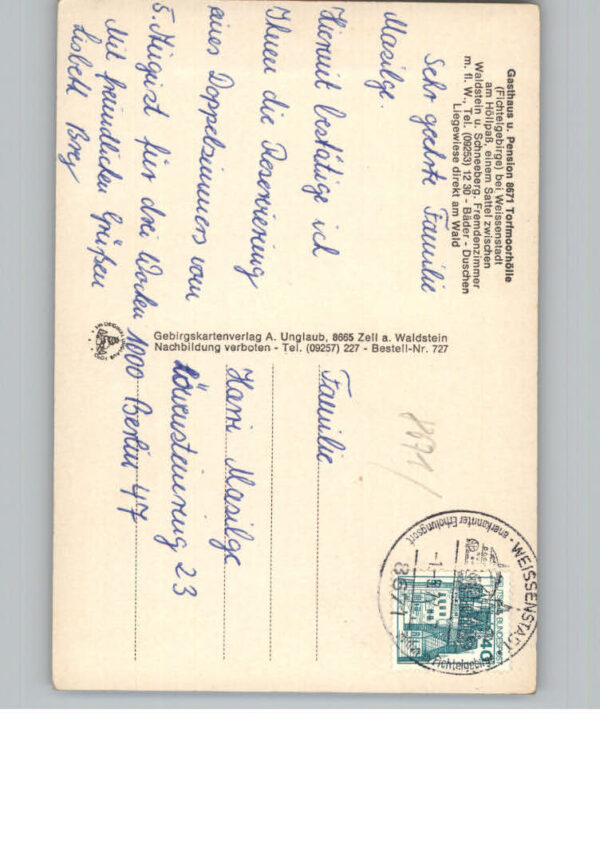 Gasthaus u. Pension 8671 Torfmoorhölle
(Fichtelgebirge) bei Weissenstadt
am Höllpaß, einem Sattel zwischen
Waldstein u. Schneeberg. Fremdenzimmer
m. fl. W., Tel. (09253) 12 30 - Bäder - Duschen
Liegewiese direkt am Wald
Sehr geehrte Familie
Masilge.
Hiermit bestätige ich
Ihnen die Reservierung
eines Doppelzimmers vom
5. August für drei Wochen
Mit freundlichen Grüßen
Lisbeth Brey
Gebirgskartenverlag A. Unglaub, 8665 Zell a. Waldstein
Nachbildung verboten - Tel. (09257) 227 - Bestell-Nr. 727
8671/
Familie
Hans Masilge
Löwensteinring 23
1000 Berlin 47
WEISSENSTADT
anerkannter Erholungsort
8671
Fichtelgebirge
DEUTSCHE BUNDESPOST
40